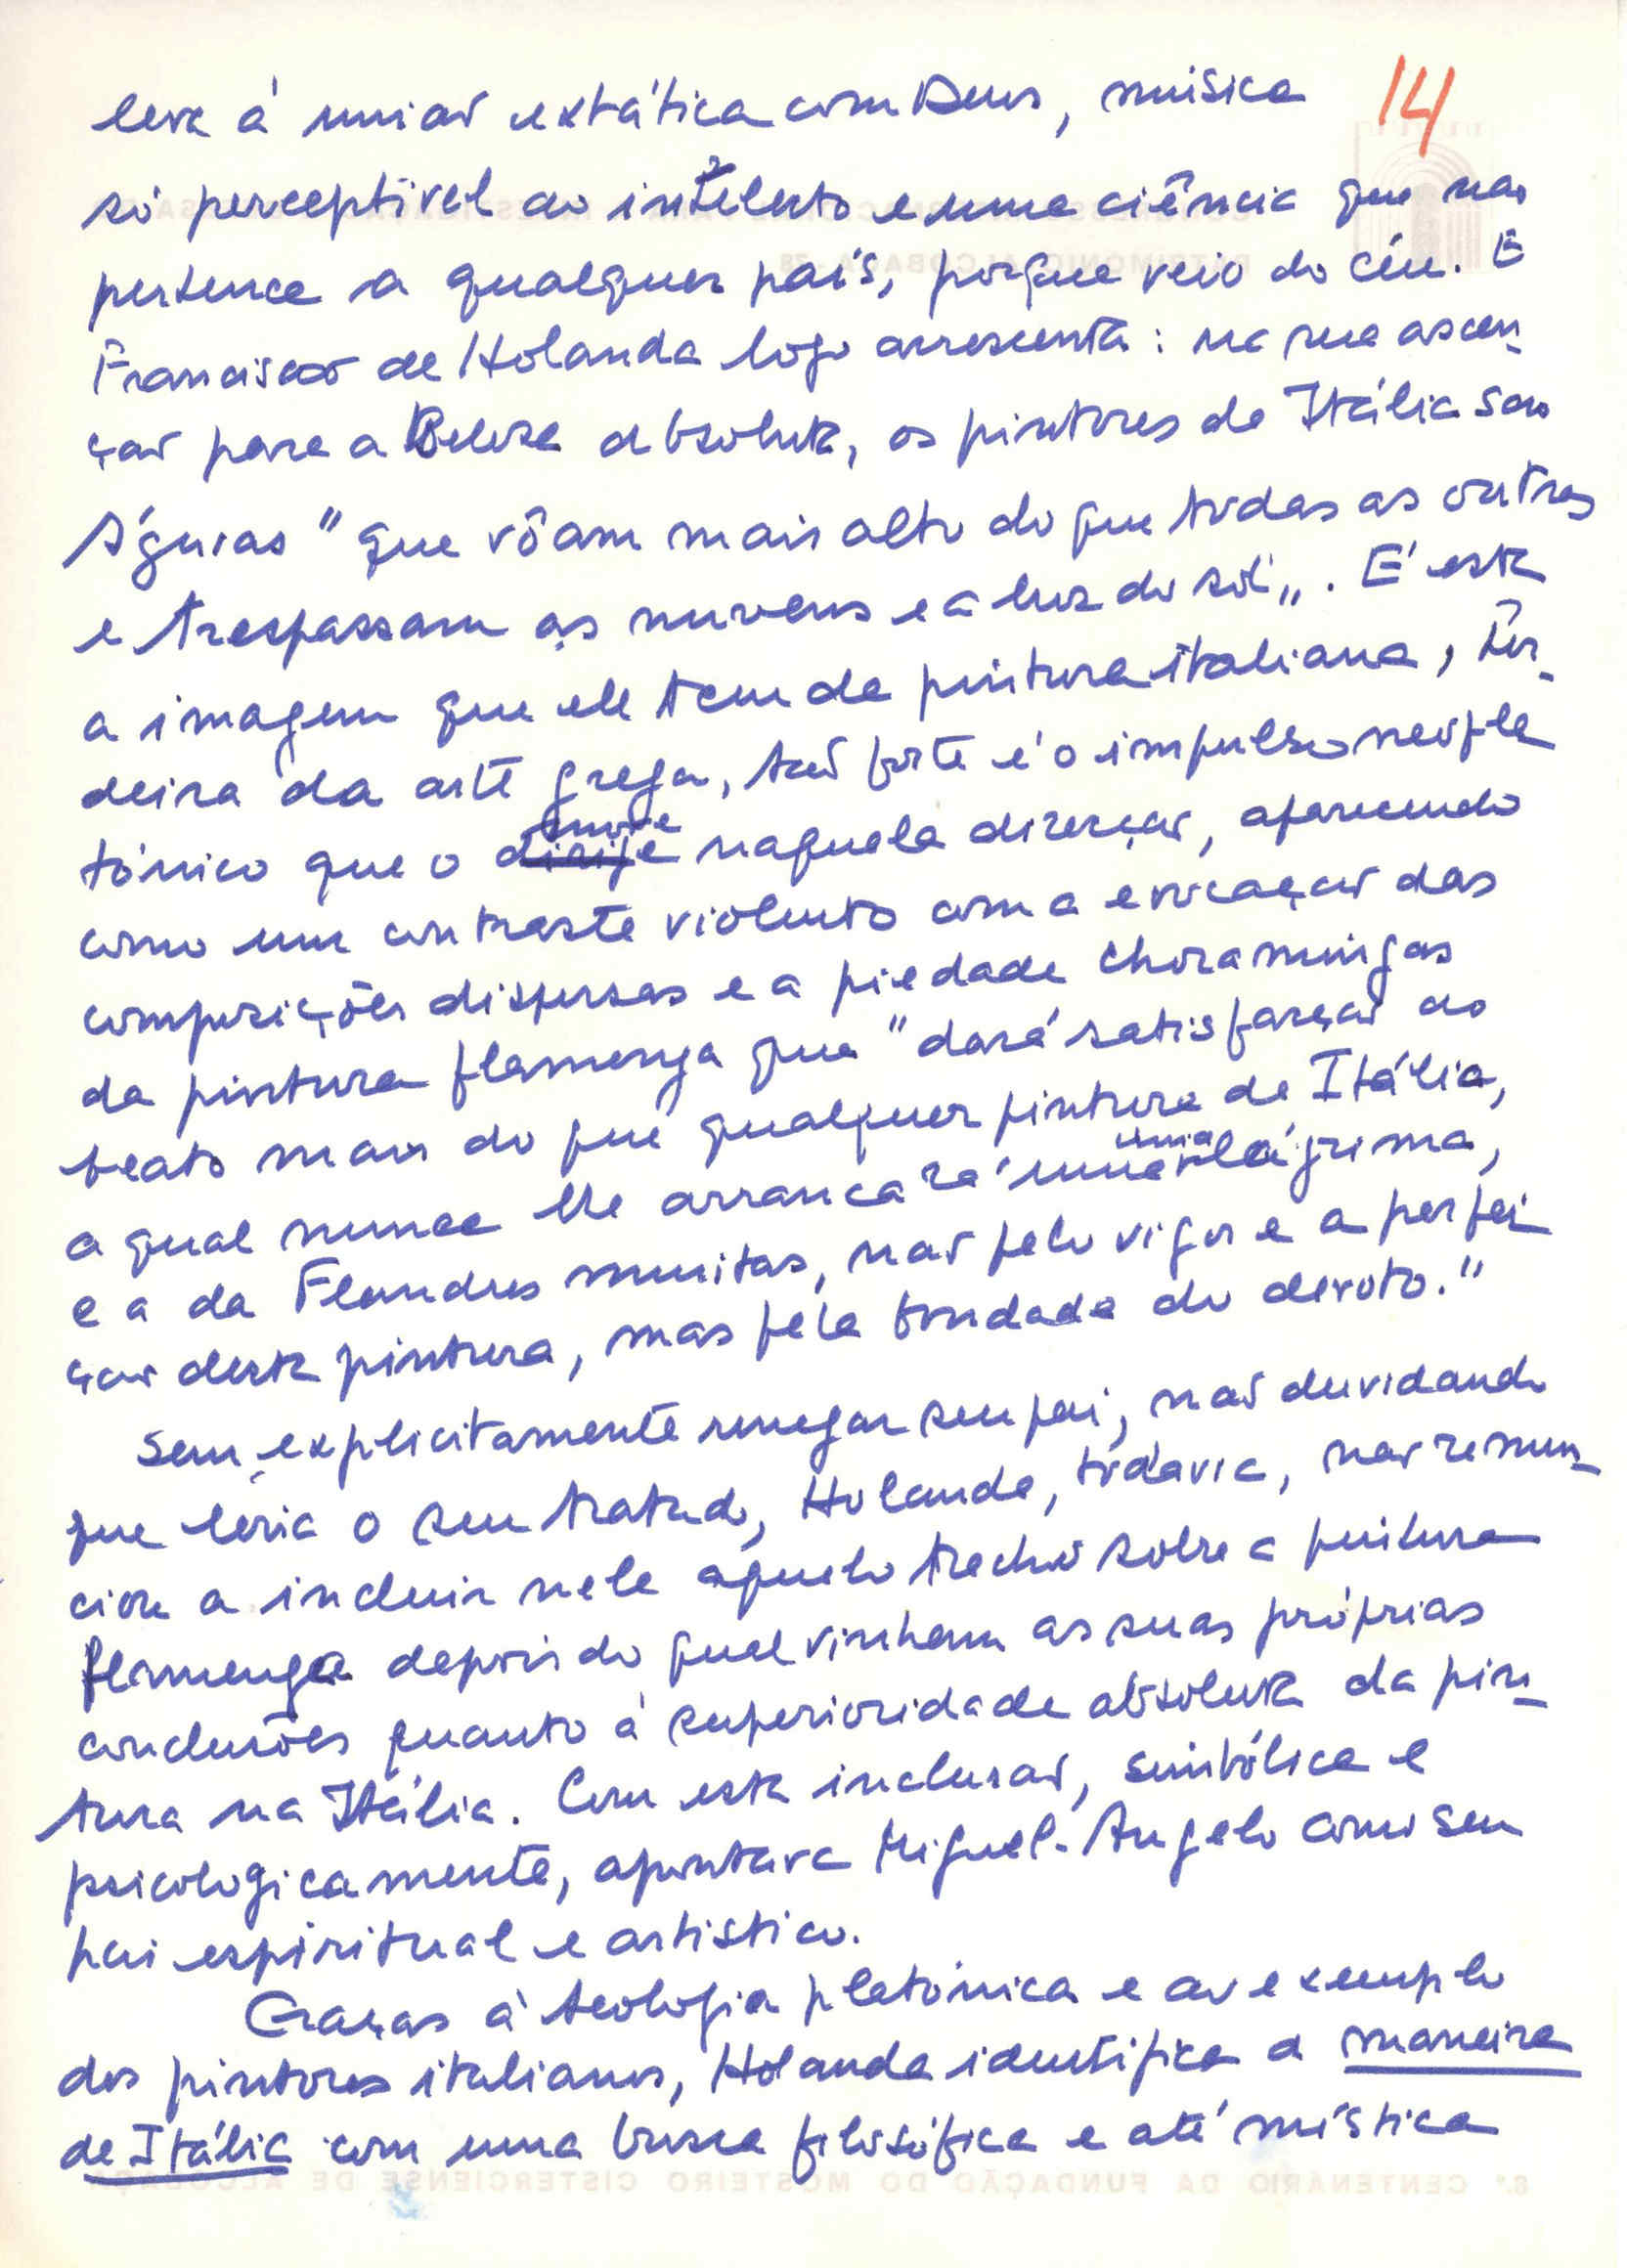 14
leva à união extática com Deus, música
só perceptível ao intelecto e uma ciência que não
pertence a qualquer país, porque veio do céu. E
Francisco de Holanda logo acrescenta: na sua ascen-
ção para a Beleza absoluta, os pintores de Itália são
Águias "que vôam mais alto do que todas as outras
e trespassam as nuvens e a luz do sol". É esta
a imagem que ele tem da pintura italiana, her-
deira da arte grega, tão forte é o impulso neopla
tónico que o dirije move naquela direcção, aparecendo
como um contraste violento com a evocação das
composições dispersas e a piedade choramingas
da pintura flamenga que "dará satisfação ao
beato mais do que qualquer pintura de Itália,
a qual nunca lhe arrancará uma uma lágrima,
e a da Flandres muitas, não pelo vigor e a perfei
ção desta pintura, mas pela bondade do devoto."
Sem explicitamente renegar seu pai, não duvidando
que leria o seu tratado, Holanda, todavia, não renun-
ciou a incluir nele aquele trecho sobre a pintura
flamenga depois do qual vinham as suas próprias
conclusões quanto à superioridade absoluta da pin-
tura na Itália. Com esta inclusão, simbólica e
psicologicamente, apontava Miguel-Angelo como seu
pai espiritual e artistico.
Graças à teologia platónica e ao exemplo
dos pintores italianos, Holanda identifica a maneira
de Itália com uma busca filosófica e até mística
8.º CENTENÁRIO DA FUNDAÇÃO DO MOSTEIRO CISTERCIENSE DE ALCOBAÇA